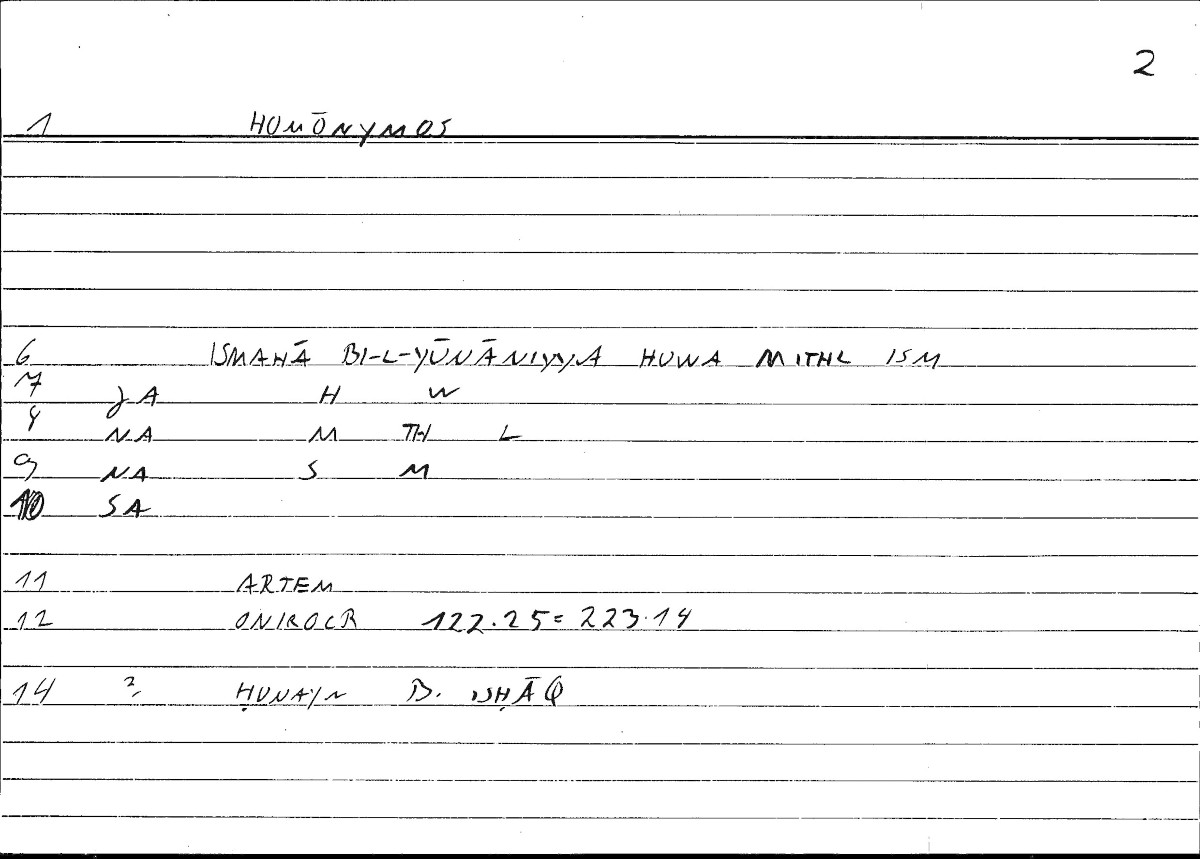 2
1 HOMŌNYMOS
6 ISMAHĀ BI-L-YŪNĀNIYYA HUWA MITHL ISM
7 JA H W
8 NA M TH L
9 NA S M
10 SA
11 ARTEM
12 ONIROCR 122.25=223.14
14 ? ḤUNAYN B. ISḤĀQ